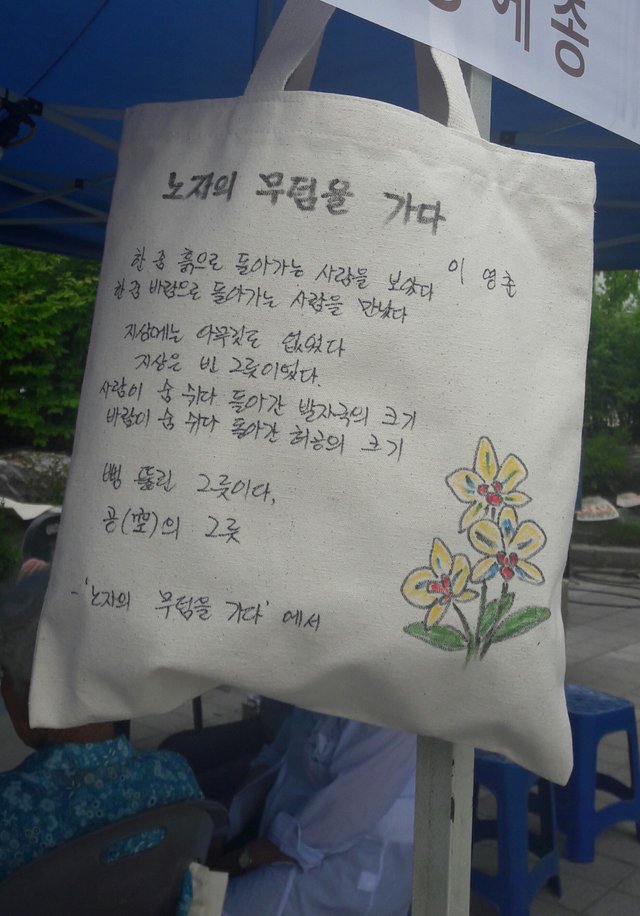 에종
노자의 무덤을 가다
이영춘
한 줌 흙으로 돌아가는 사람을 보았다
한 줌 바람으로 돌아가는 사람을 만났다
지상에는 아무것도 없었다
지상은 빈 그릇이었다.
사람이 숨 쉬다 돌아간 발자국의 크기
바람이 숨 쉬다 돌아간 허공의 크기
뻥 뚫린 그릇이다,
공(空)의 그릇
-'노자의 무덤을 가다' 에서